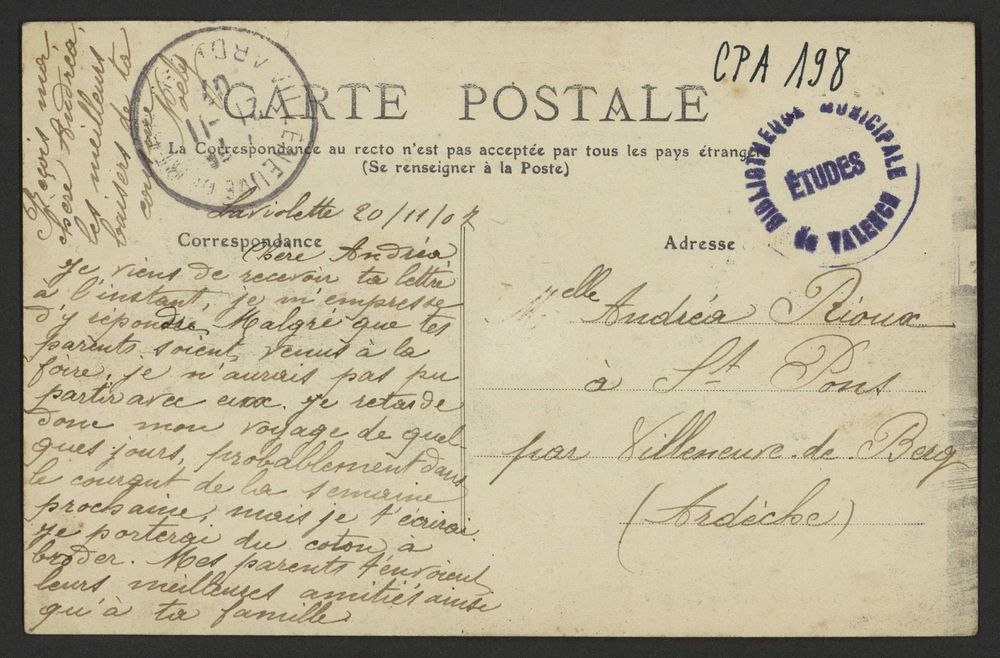 CPA 198
CARTE POSTALE
La Correspondance au recto n'est pas acceptée par tous les pays étrangers
(Se renseigner à la Poste)
BIBLIOTHEQUE MUNICIPALE
ÉTUDES
de VALENCE
VILLENEUVE DE BERG
ARD
Laviolette 20/11/07
Correspondance
Chère Andréa
Je viens de recevoir ta lettre
à l'instant, je m'empresse
d'y répondre. Malgré que tes
parents soient venus à la
foire, je n'aurais pas pu
partir avec eux. Je retarde
donc mon voyage de quel
ques jours, probablement dans
le courant de la semaine
prochaine, mais je t'écrirai.
Je porterai du coton à
broder. Mes parents t'envoient
leurs meilleures amitiés ainsi
qu'à ta famille.
Reçois ma
chère Andréa,
les meilleurs
baisers de ta
cousine
Adresse
Melle Andréa Rioux
à St Pons
par Villeneuve-de-Berg
(Ardèche)